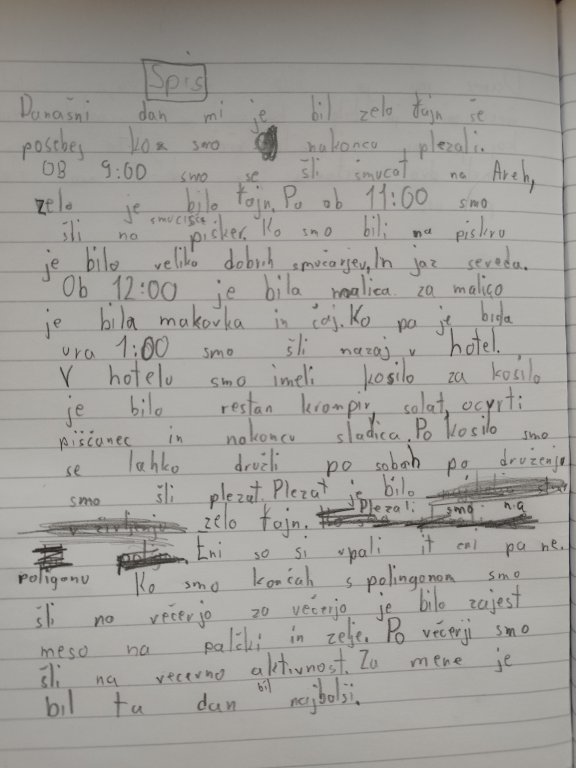 Spis
Današni dan mi je bil zelo fajn še
posebej ko smo nakoncu plezali.
Ob 9:00 smo se šli smučat na Areh,
zelo je bilo fajn. Po ob 11:00 smo
smučišče
šli na pisker. Ko smo bili na piskru
je bilo veliko dobrih smučarjev, In jaz seveda.
Ob 12:00 je bila malica za malico
je bila makovka in čaj. Ko pa je bila
ura 1:00 smo šli nazaj v hotel.
V hotelu smo imeli kosilo za kosilo
je bilo restan krompir, solat, ocvrti
piščanec in nakoncu sladica. Po kosilo smo
se lahko družli po sobah po druženju
smo šli plezat. Plezat je bilo
zelo fajn. Plezali smo na
poligonu Eni so si upali it eni pa ne.
Ko smo končah s polingonom smo
šli na večerjo za večerjo je bilo zajest
meso na palčki in zelje. Po večerji smo
šli na vecerno aktivnost. Za mene je
bil
bil ta dan najbolši.